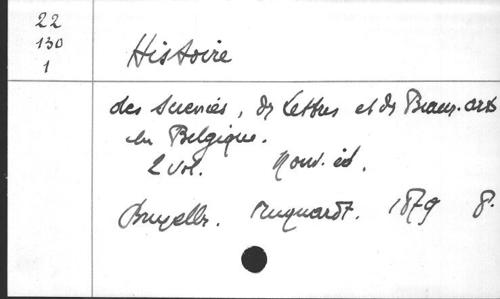 22
130
1
Histoire
des Sciences, des Lettres et des Beaux-arts
en Belgique.
2 vol. Nouv. éd.
Bruxelles. Muquardt. 1879 8.